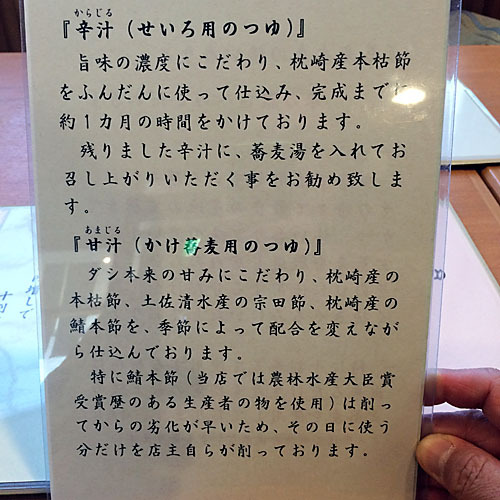 からじる
『辛汁（せいろ用のつゆ）』
旨味の濃度にこだわり、枕崎産本枯節
をふんだんに使って仕込み、完成までに
約１カ月の時間をかけております。
残りました辛汁に、蕎麦湯を入れてお
召し上がりいただく事をお勧め致しま
す。
あまじる
『甘汁（かけ蕎麦用のつゆ）』
ダシ本来の甘みにこだわり、枕崎産の
本枯節、土佐清水産の宗田節、枕崎産の
鯖本節を、季節によって配合を変えなが
ら仕込んでおります。
特に鯖本節（当店では農林水産大臣賞
受賞歴のある生産者の物を使用）は削っ
てからの劣化が早いため、その日に使う
分だけを店主自らが削っております。